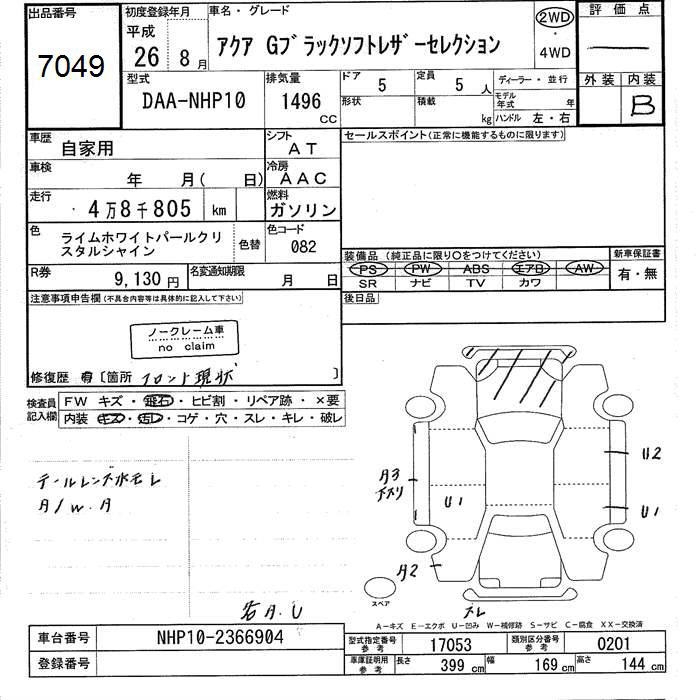 出品番号
7049
初度登録年月
平成
26 8月
車名・グレード
アクア Gブラックソフトレザーセレクション
2WD
・
4WD
評価点
外装 内装
B
型式
DAA-NHP10
排気量
1496
CC
ドア 5
定員 5 人
形状
積載 kg
ディーラー・並行
モデル年式 年
ハンドル 左・右
車歴
自家用
シフト
AT
セールスポイント(正常に機能するものに限ります)
車検
年 月( 日)
冷房
AAC
走行
4万8千805 km
燃料
ガソリン
色
ライムホワイトパールクリスタルシャイン
色替
色コード
082
装備品 (純正品に限り○をつけてください)
新車保証書
PS PW ABS エアB AW
SR ナビ TV カワ
有・無
R券
9,130 円
名変通知期限
月 日
後日品
注意事項申告欄(不具合内容等は具体的に記入して下さい)
ノークレーム車
no claim
修復歴 有 〔箇所 フロント現状 〕
検査員記入欄
FW キズ・飛石・ヒビ割・リペア跡・×要
内装 キズ・汚レ・コゲ・穴・スレ・キレ・破レ
テールレンズ水モレ
A/W.A
A3
U2
U1
U1
A2
スペア
A-キズ E-エクボ U-凹み W-補修跡 S-サビ C-腐食 XX-交換済
車台番号
NHP10-2366904
登録番号
型式指定番号
参考
17053
類別区分番号
参考
0201
車庫証明用
参考
長さ 399 cm
幅 169 cm
高さ 144 cm